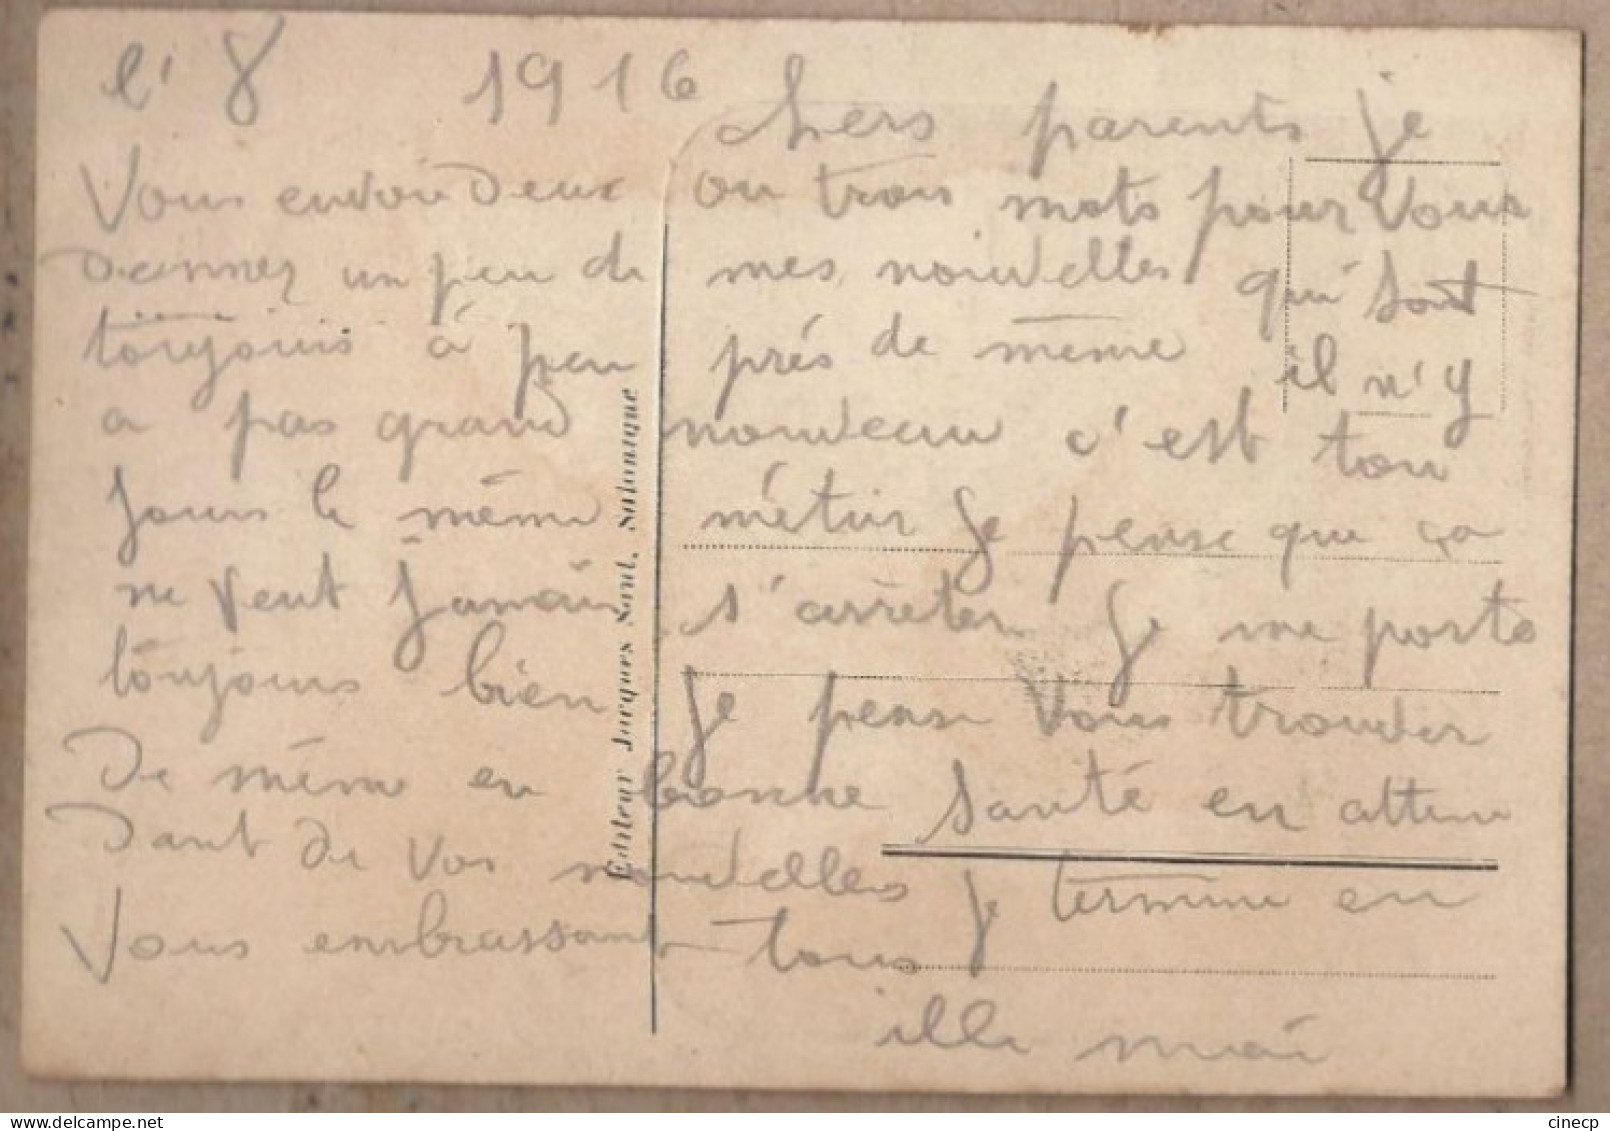 l' 8 1916
chers parents je
Vous envoie deux ou trois mots pour vous
donner un peu de mes nouvelles qui sont
toujours à peu près de même il n'y
a pas grand nouveau c'est tou
jours le même métier je pense que ça
ne veut jamais s'arrêter je me porte
toujours bien je pense vous trouver
de même en bonne santé en atten
dant de vos nouvelles je termine en
Vous embrassant tous
Editeur Jacques Saul, Salonique
cinecp